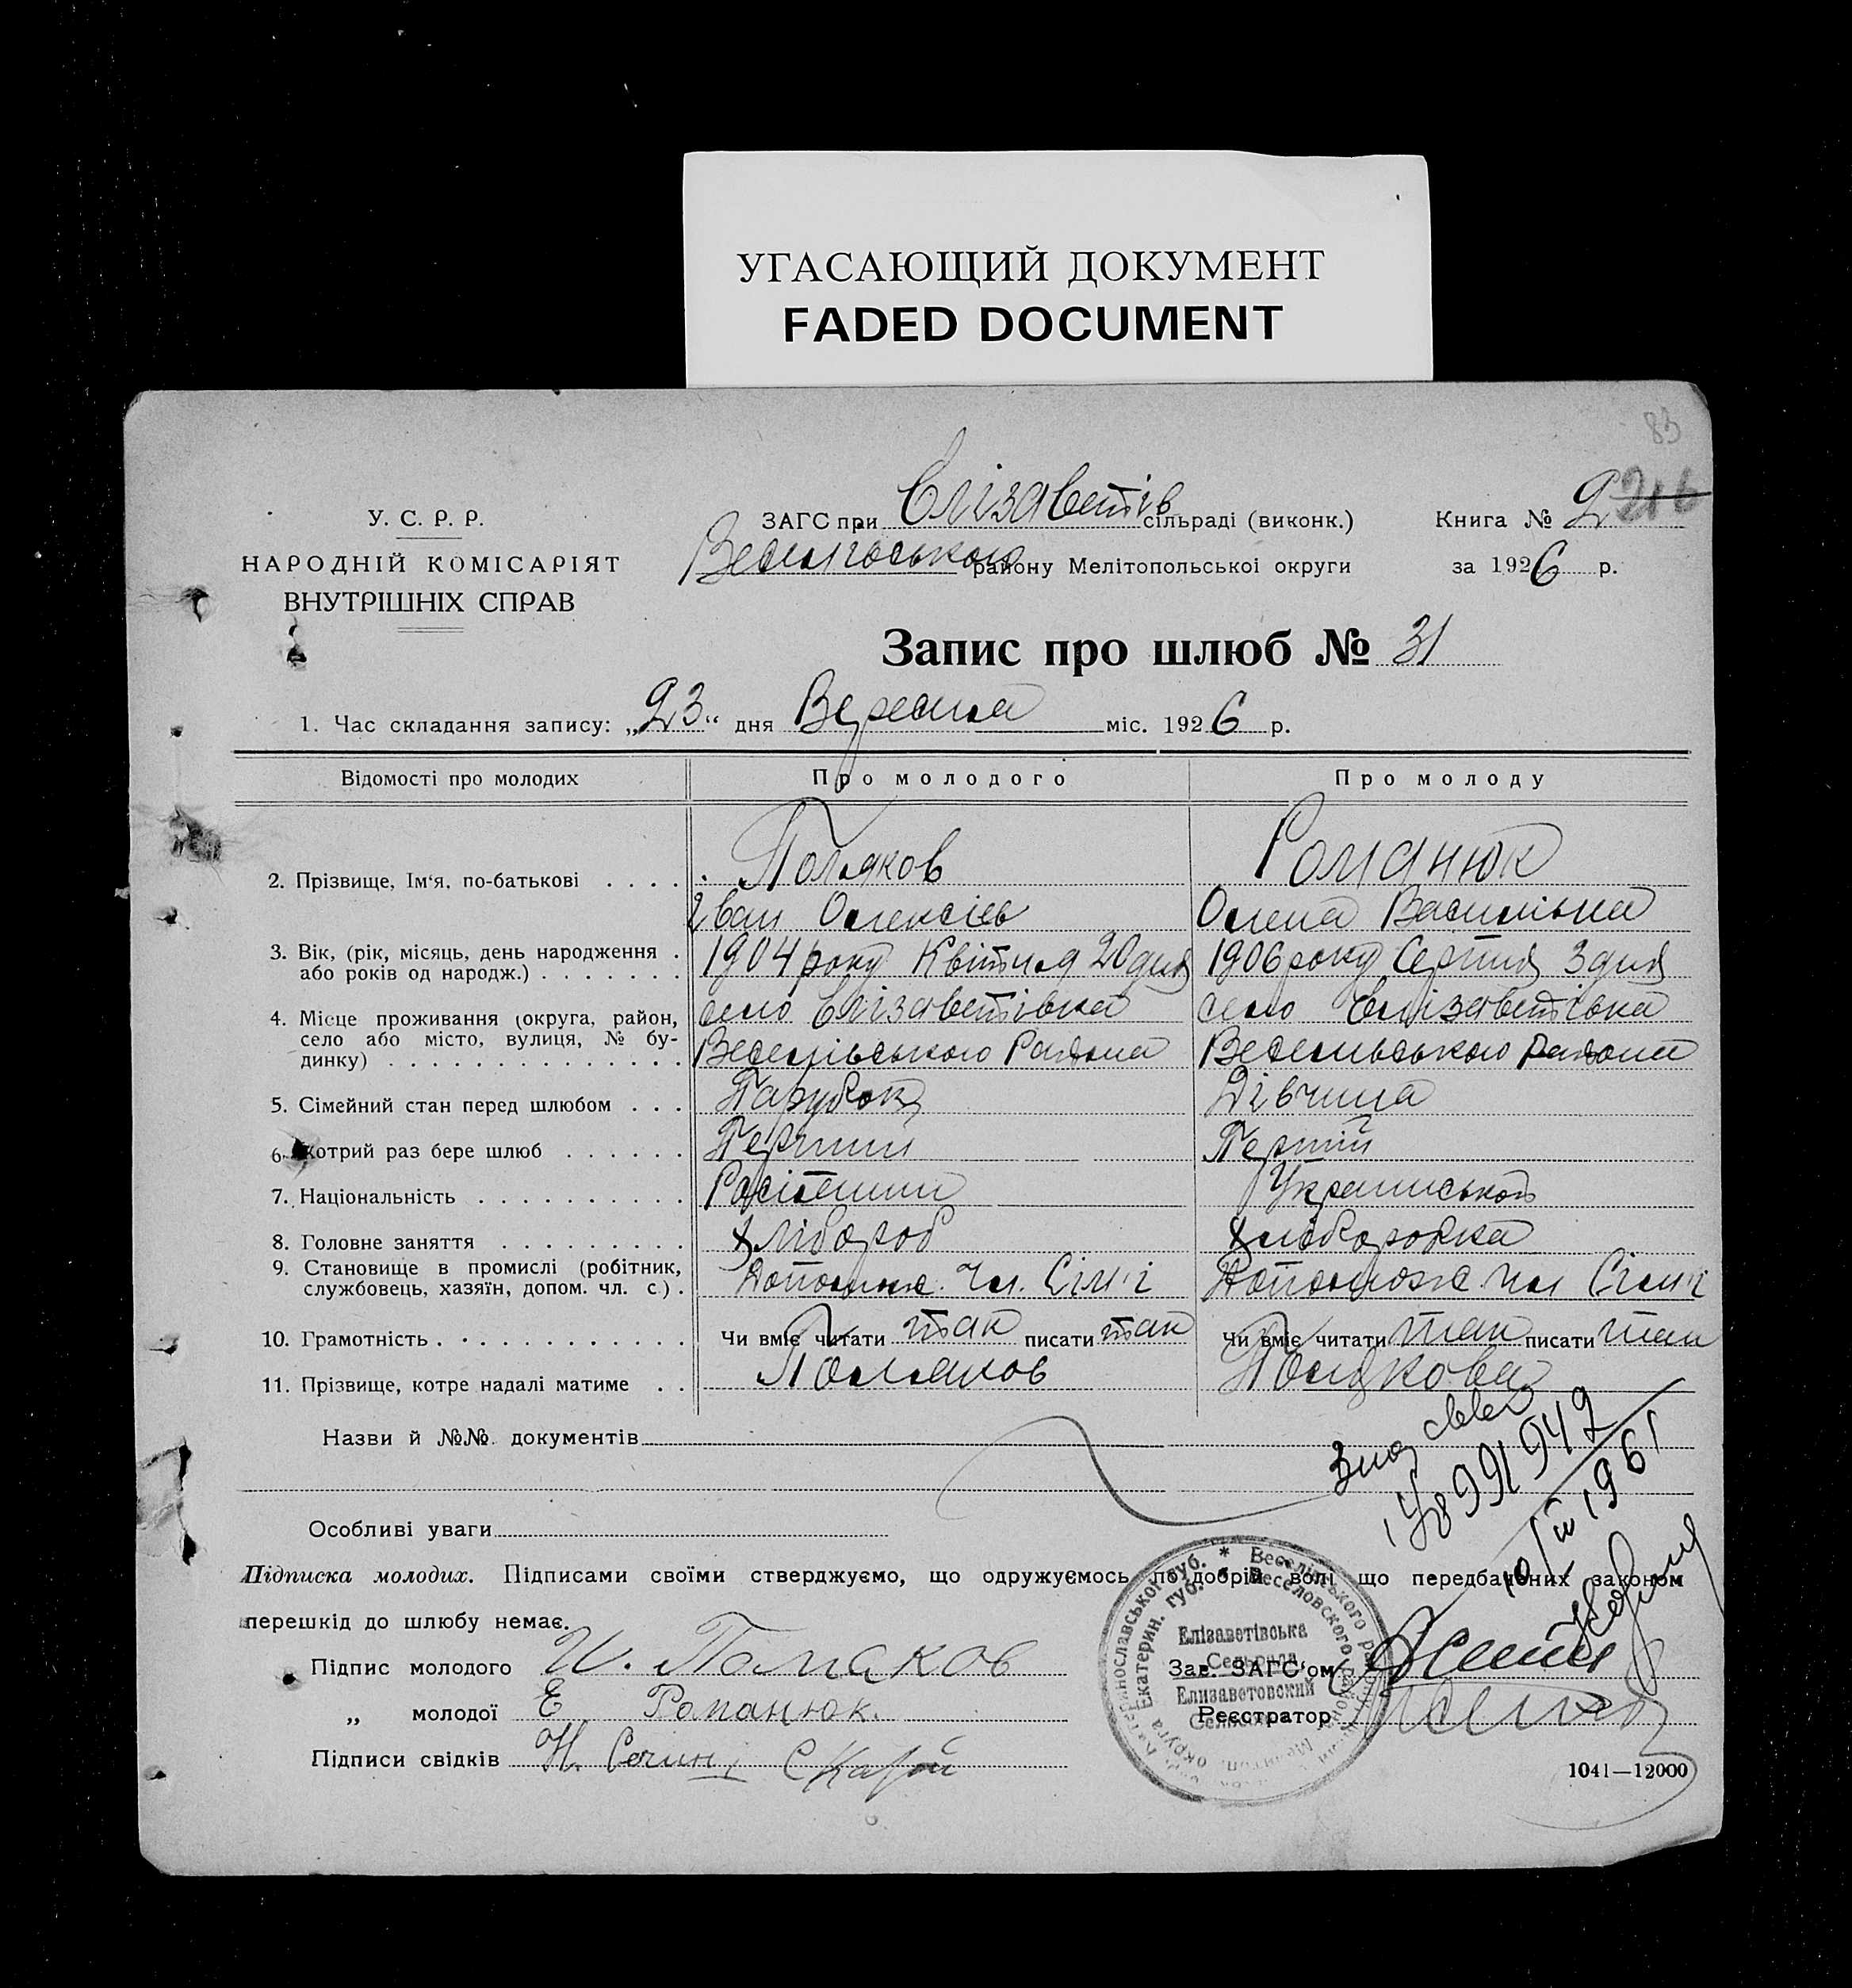 УГАСАЮЩИЙ ДОКУМЕНТ
FADED DOCUMENT
83
У. С. Р. Р.
НАРОДНІЙ КОМІСАРІЯТ
ВНУТРІШНІХ СПРАВ
ЗАГС при Єлізаветів сільраді (виконк.)
району Мелітопольської округи
Книга № 2 216
за 1926 р.
Запис про шлюб № 31
1. Час складання запису: „23“ дня Вересня міс. 1926 р.
Відомості про молодих Про молодого Про молоду
2. Прізвище, Ім'я, по-батькові . . . . Поляков Романюк
Іван Олексієв Олена Василівна
3. Вік, (рік, місяць, день народження . 1904 року Квітня 20 дня 1906 року Серпня 3 дня
або років од народж.) . . . . . . .
4. Місце проживання (округа, район, село Єлізаветівка село Єлізаветівка
село або місто, вулиця, № бу-
динку) . . . . . . . . . . . . . . Веселівського Района Веселивського Района
5. Сімейний стан перед шлюбом . . . Парубок Дівчина
6. Котрий раз бере шлюб . . . . . . Перший Перший
7. Національність . . . . . . . . . . Українськой
8. Головне заняття . . . . . . . . . Хлібороб Хліборобка
9. Становище в промислі (робітник,
службовець, хазяїн, допом. чл. с.) . чл. Сім'ї чл Сім'ї
10. Грамотність . . . . . . . . . . . . Чи вміє читати так писати так Чи вміє читати так писати так
11. Прізвище, котре надалі матиме . . Поляков Полякова
Назви й №№ документів
10/III 1961
Особливі уваги
Підписка молодих. Підписами своїми стверджуємо, що одружуємось по добрій волі що передбачених законом
перешкід до шлюбу немає.
Підпис молодого И. Поляков
„ молодої Е Романюк.
Підписи свідків
Зав. ЗАГС'ом
Реєстратор
Веселівського
Веселовского
Екатерин. губ.
Елізаветівська
Сельрада
Елизаветовский
1041—12000